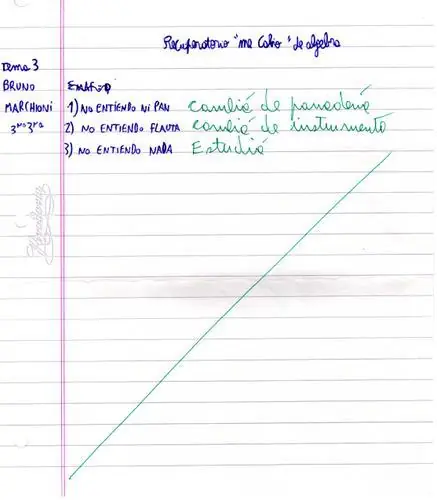 Recuperatorio "me cabio" de algebra
Tema 3
BRUNO
MARCHIONI
3ro 3ra
1) NO ENTIENDO NI PAN cambiá de panadería
2) NO ENTIENDO FLAUTA cambiá de instrumento
3) NO ENTIENDO NADA Estudiá